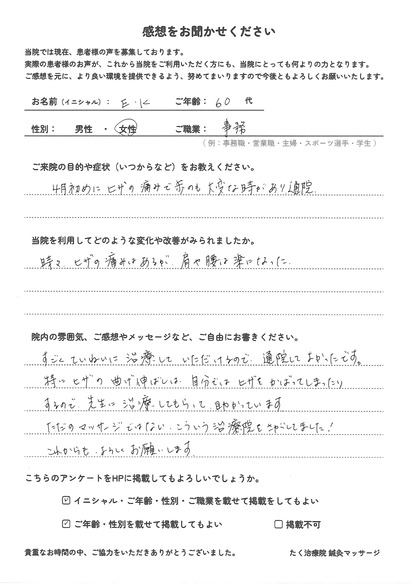 感想をお聞かせください
当院では現在、患者様の声を募集しております。
実際の患者様のお声が、これから当院をご利用いただく方にも、当院にとっても何よりの力となります。
ご感想を元に、より良い環境を提供できるよう、努めてまいりますので今後ともよろしくお願いいたします。
お名前（イニシャル）： E・K ご年齢： 60 代
性別： 男性 ・ 女性 ご職業： 事務
（ 例：事務職・営業職・主婦・スポーツ選手・学生 ）
ご来院の目的や症状（いつからなど）をお教えください。
4月初めに ヒザの痛みで歩のも大変な時があり通院
当院を利用してどのような変化や改善がみられましたか。
時々、ヒザの痛みはあるが、肩や腰は楽になった
院内の雰囲気、ご感想やメッセージなど、ご自由にお書きください。
すごくていねいに治療していただけるので、通院してよかったです。
特にヒザの曲げ伸ばしは、自分ではヒザをかばってしまったり
するので、先生に治療してもらって、助かっています
ただのマッサージではない、こういう治療院をさがしてました！
これからも、よろしくお願いします
こちらのアンケートをHPに掲載してもよろしいでしょうか。
☑ イニシャル・ご年齢・性別・ご職業を載せて掲載をしてもよい
☑ ご年齢・性別を載せて掲載してもよい □ 掲載不可
貴重なお時間の中、ご協力をいただきありがとうございました。 たく治療院 鍼灸マッサージ